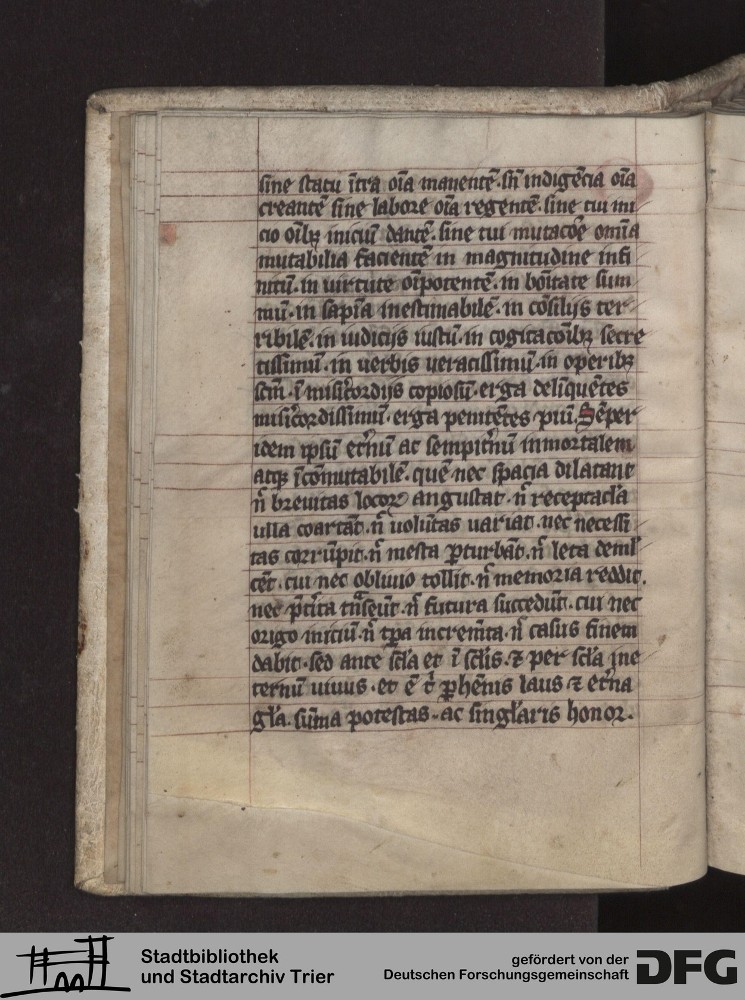 sine statu ītra oīa manentē. sn̄ indigēcia oīa
creantē sine labore oīa regentē. sine tui ini
cio oībꝫ iniciū dantē. sine tui mutacōe omīa
mutabilia facientē in magnitudine infi
nitū. in uirtute oīpotentē. in boītate sum
mū. in sapīa inestimabilē. in cōsilijs ter
ribilē. in iudicijs iustū. in cogitacoībꝫ secre
tissimū. in uerbis ueracissimū. in operibꝫ
scm̄. ī misi͛cordijs copiosū. erga delīquētes
misi͛cordissimū. erga penitētes piū. Sēper
idem ipsū et͛nū ac sempit͛nū inmortalem
atqꝫ īcōmutabilē. quē nec spacia dilatant
n̄ breuitas locoꝝ angustat. n̄ receptacl̄a
ulla coartāt. n̄ uolūtas uariat. nec necessi
tas corrūpit. n̄ mesta ꝑturbāt. n̄ leta demul
cēt. cui nec obliuio tollit. n̄ memoria reddit.
nec p̄t͛ita tn̄seūt. n̄ futura succedūt. cui nec
origo iniciū. n̄ tꝑa increm̄ta. n̄ casus finem
dabit. sed ante scl̄a et ī scl̄is. ⁊ per scl̄a ine
ternū uiuus. et ē t͛ ꝑhēnis laus ⁊ et͛na
gl̄a. sūma potestas. ac singl̄aris honor.
Stadtbibliothek
und Stadtarchiv Trier
gefördert von der
Deutschen Forschungsgemeinschaft
DFG